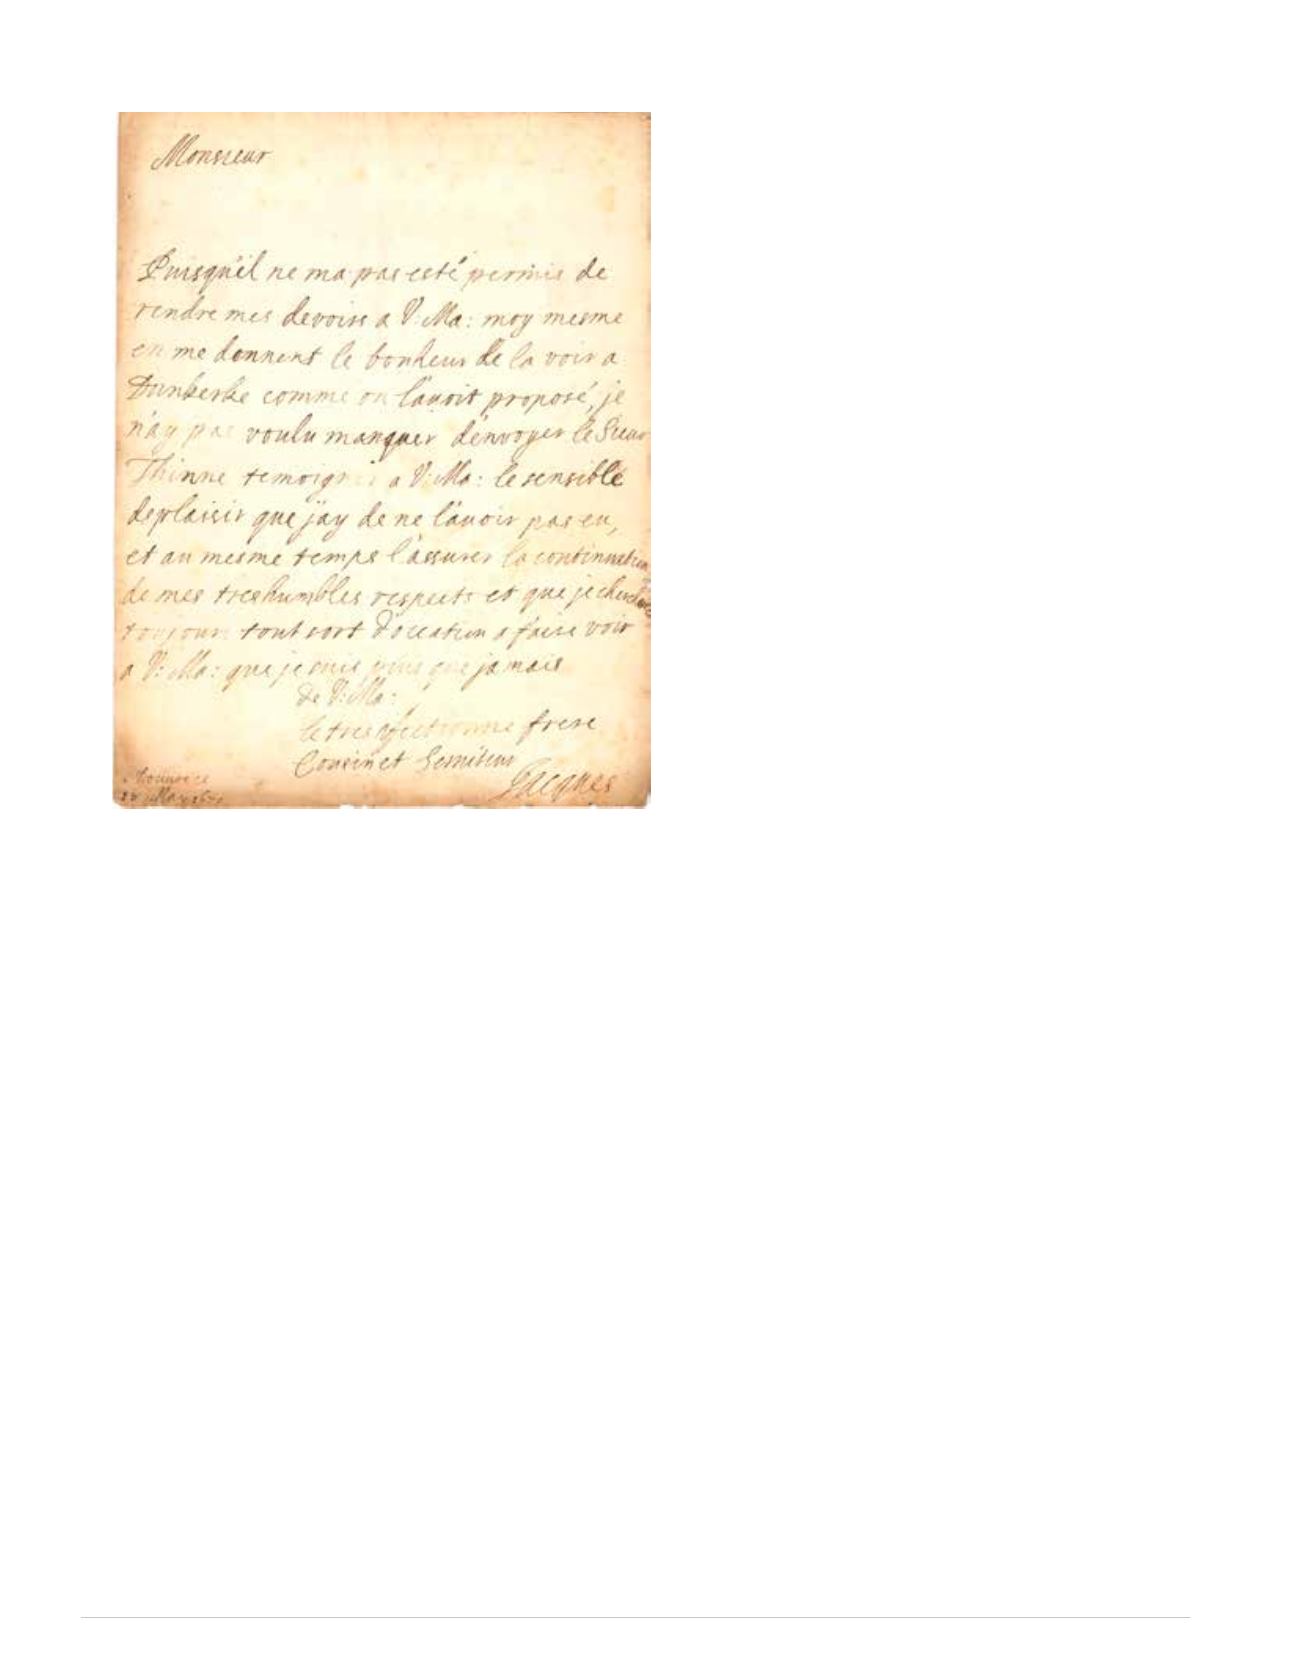 Monsieur
Puisqu'il ne ma pas esté permis de
rendre mes devoirs a V: Ma: moy mesme
en me donnent le bonheur de la voir a
Dunkerke comme on l'avoit proposé, je
n'ay pas voulu manquer d'envoyer le Sieur
Thinne temoigner a V: Ma: le sensible
deplaisir que j'ay de ne l'avoir pas eu,
et au mesme temps l'assurer la continuation
de mes treshumbles respects et que je
toujours tout sort d'occation a faire voir
a V: Ma: que je suis plus que jamais
de V: Ma:
le tres affectionne frere
Cousin et Serviteur
Jacques
May